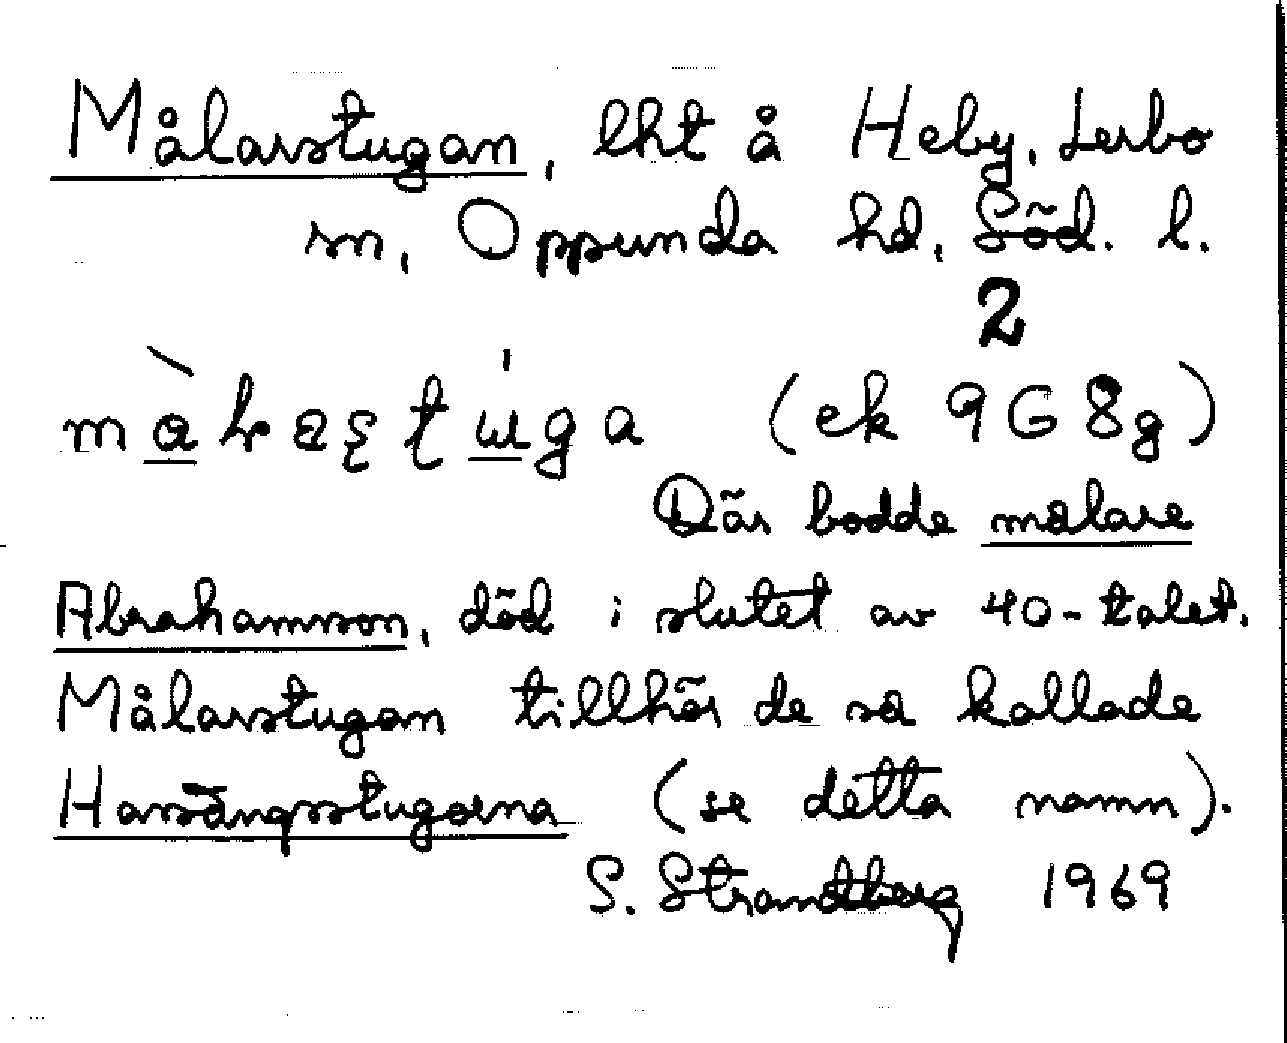 Målarstugan, lht å Heby, Lerbo
sn, Oppunda hd, Söd. l.
2
(ek 9G8g)
Där bodde målare
Abrahamsson, död i slutet av 40-talet.
Målarstugan tillhör de så kallade
Harsängsstugorna (se detta namn).
S. Strandberg 1969